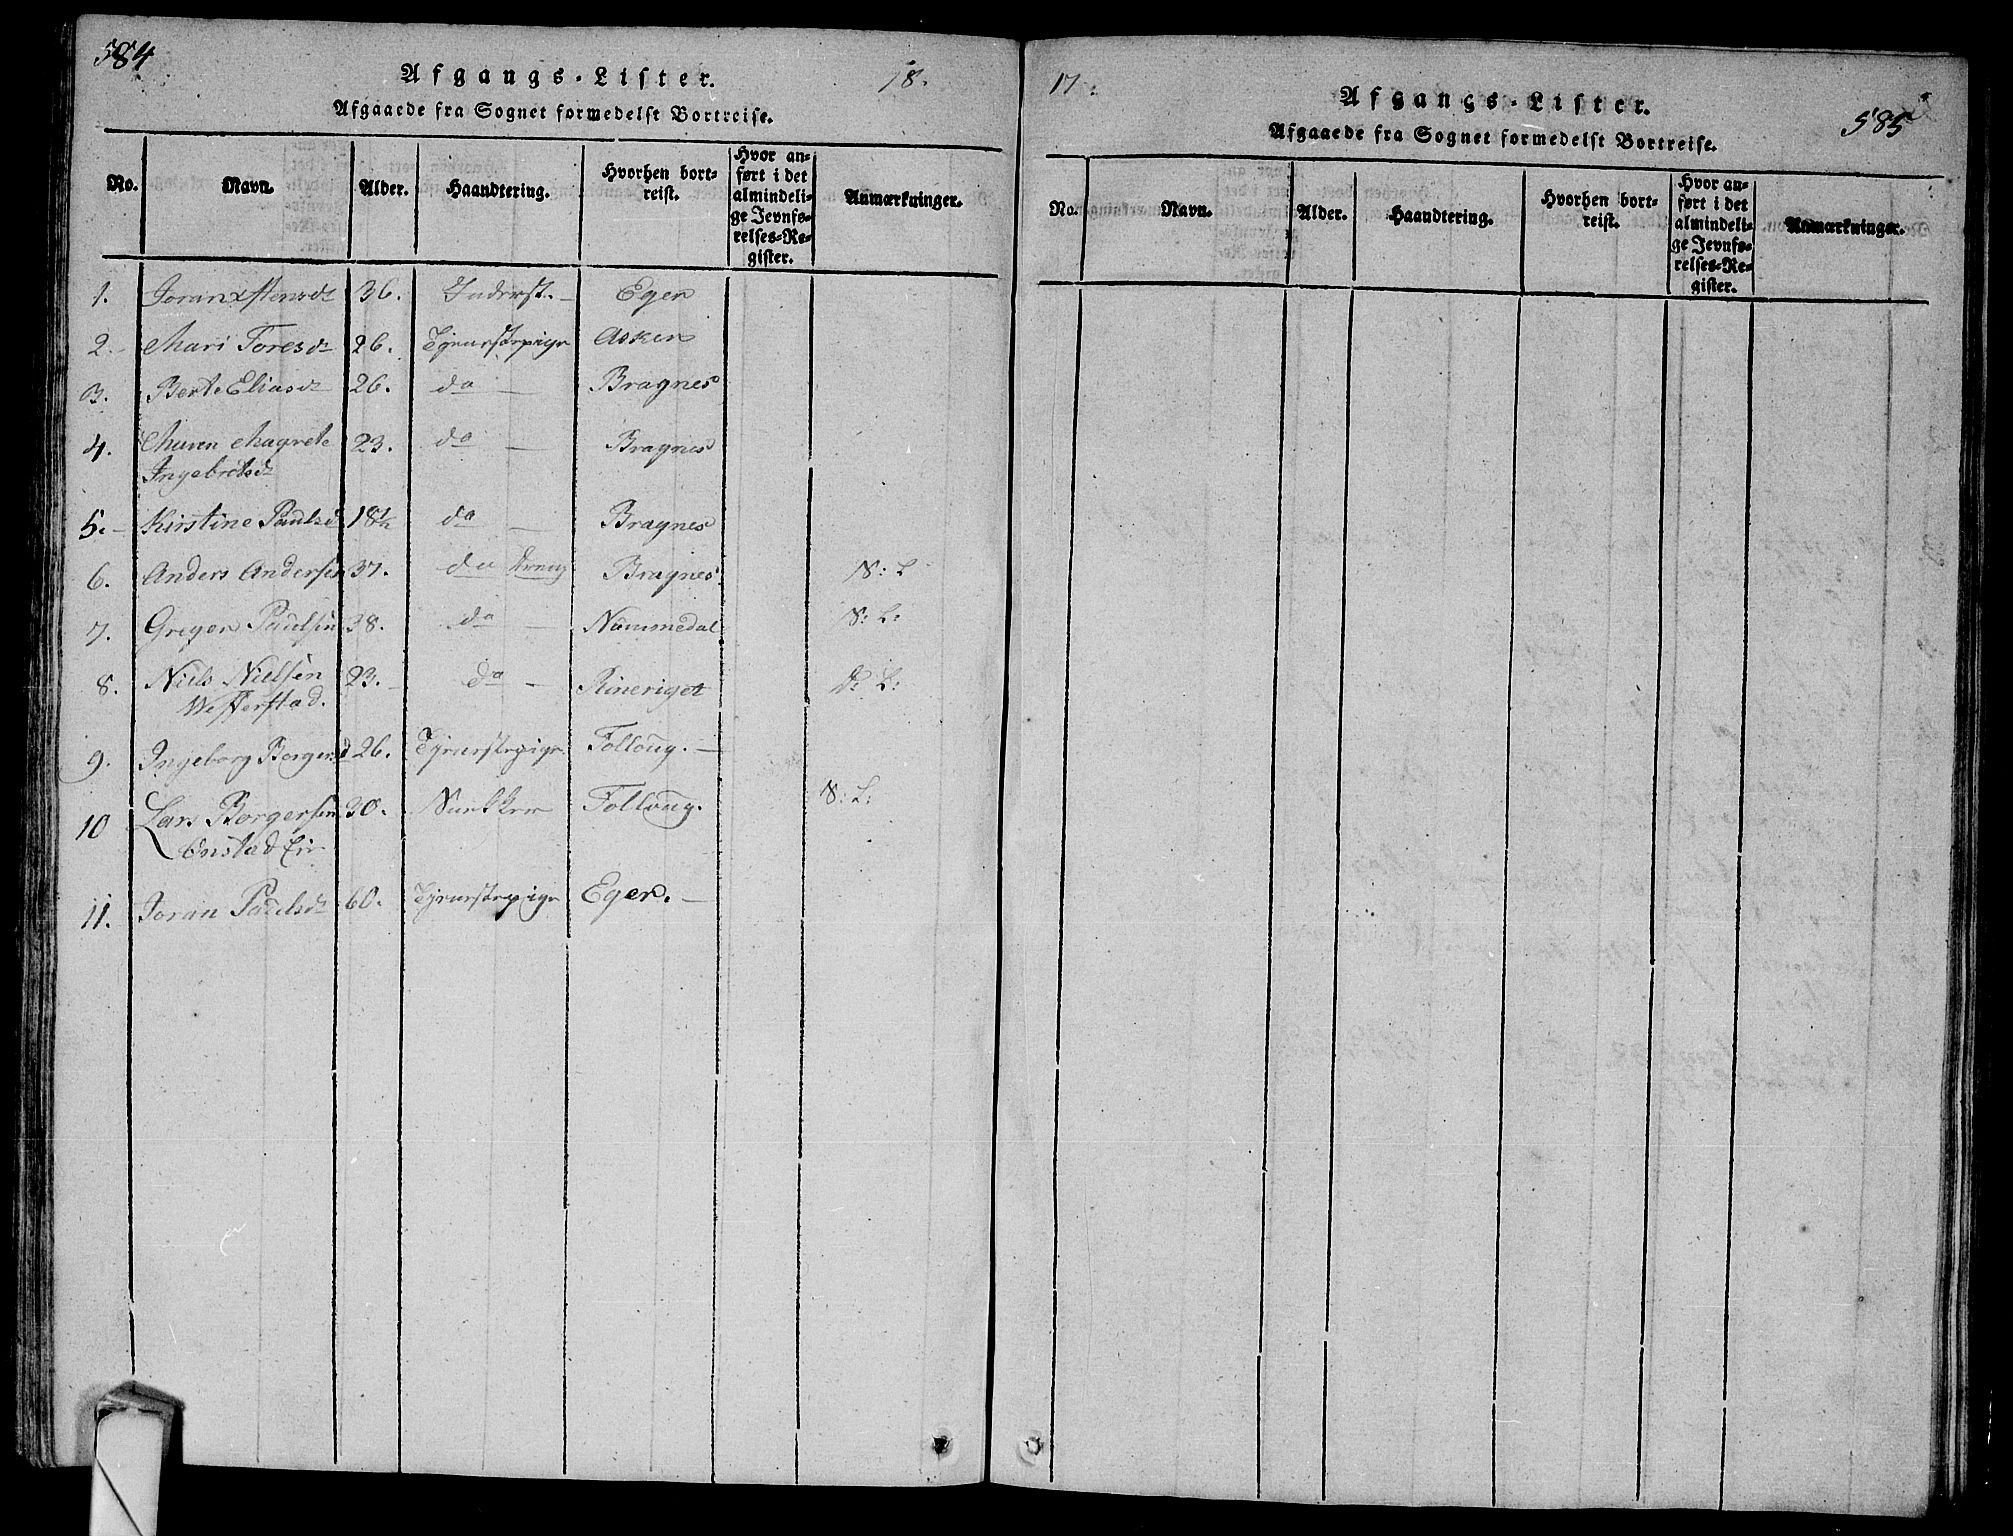 584
Afgangs-Lister.
18.
Afgaaede fra Sognet formedelst Bortreise.
No. Navn. Alder. Haandtering. Hvorhen bortreist. Hvor anført i det almindelige Jevnførelses-Register. Anmærkninger.
1. Joran 36. Eger
2. Mari Toresdr 26. Tjenestepige Asker
3. Berte Eliasdr 26. do — Bragnes
4. Maren Magrete 23. do — Bragnes
Ingebretsdr
5. Kirstine Paulsd 18½ do — Bragnes
6. Anders Andersen 37. do Bragnes S: L
7. Greger Paulsen 38. do — Nummedal S: L:
8. Niels Nielsen 23. do — Rineriget L:
Wefferstad.
9. Ingeborg Borgersd 26. Tjenestepige Folloug. —
10 Lars Borgersen 30. Folloug. S: L:
Onstad Eie
11. Joran Paulsdr 60. Tjenestepige Eger. —
17.
Afgangs-Lister.
585
Afgaaede fra Sognet formedelst Bortreise.
No. Navn. Alder. Haandtering. Hvorhen bortreist. Hvor anført i det almindelige Jevnførelses-Register. Anmærkninger.